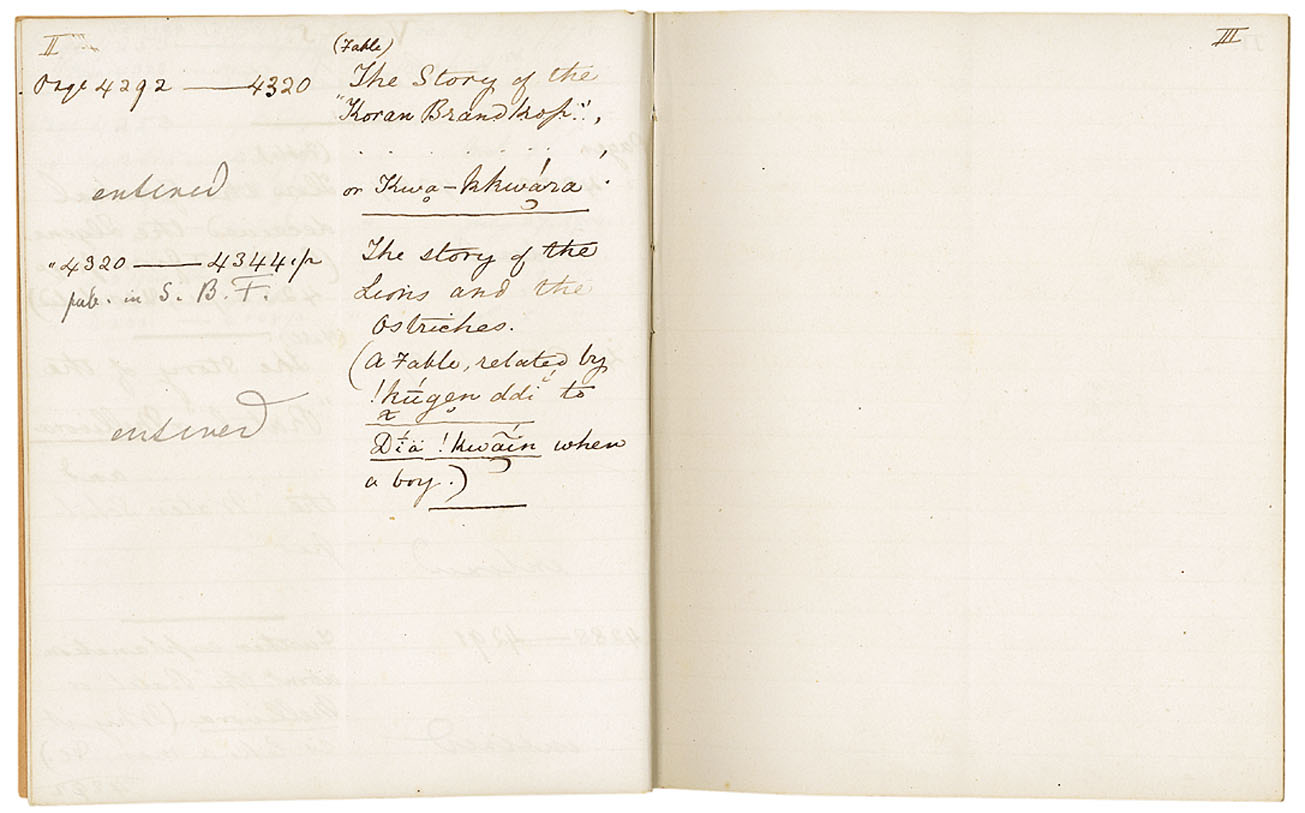 II
III
(Fable)
Page 4292 — 4320 The Story of the
"Koran Brandkop",
entered or Kwa-kkwára.
" 4320 — 4344 The story of the
pub. in S. B. F. Lions and the
Ostriches.
(A Fable, related by
entered !kúgen ddi to
Día !kwãin when
a boy.)